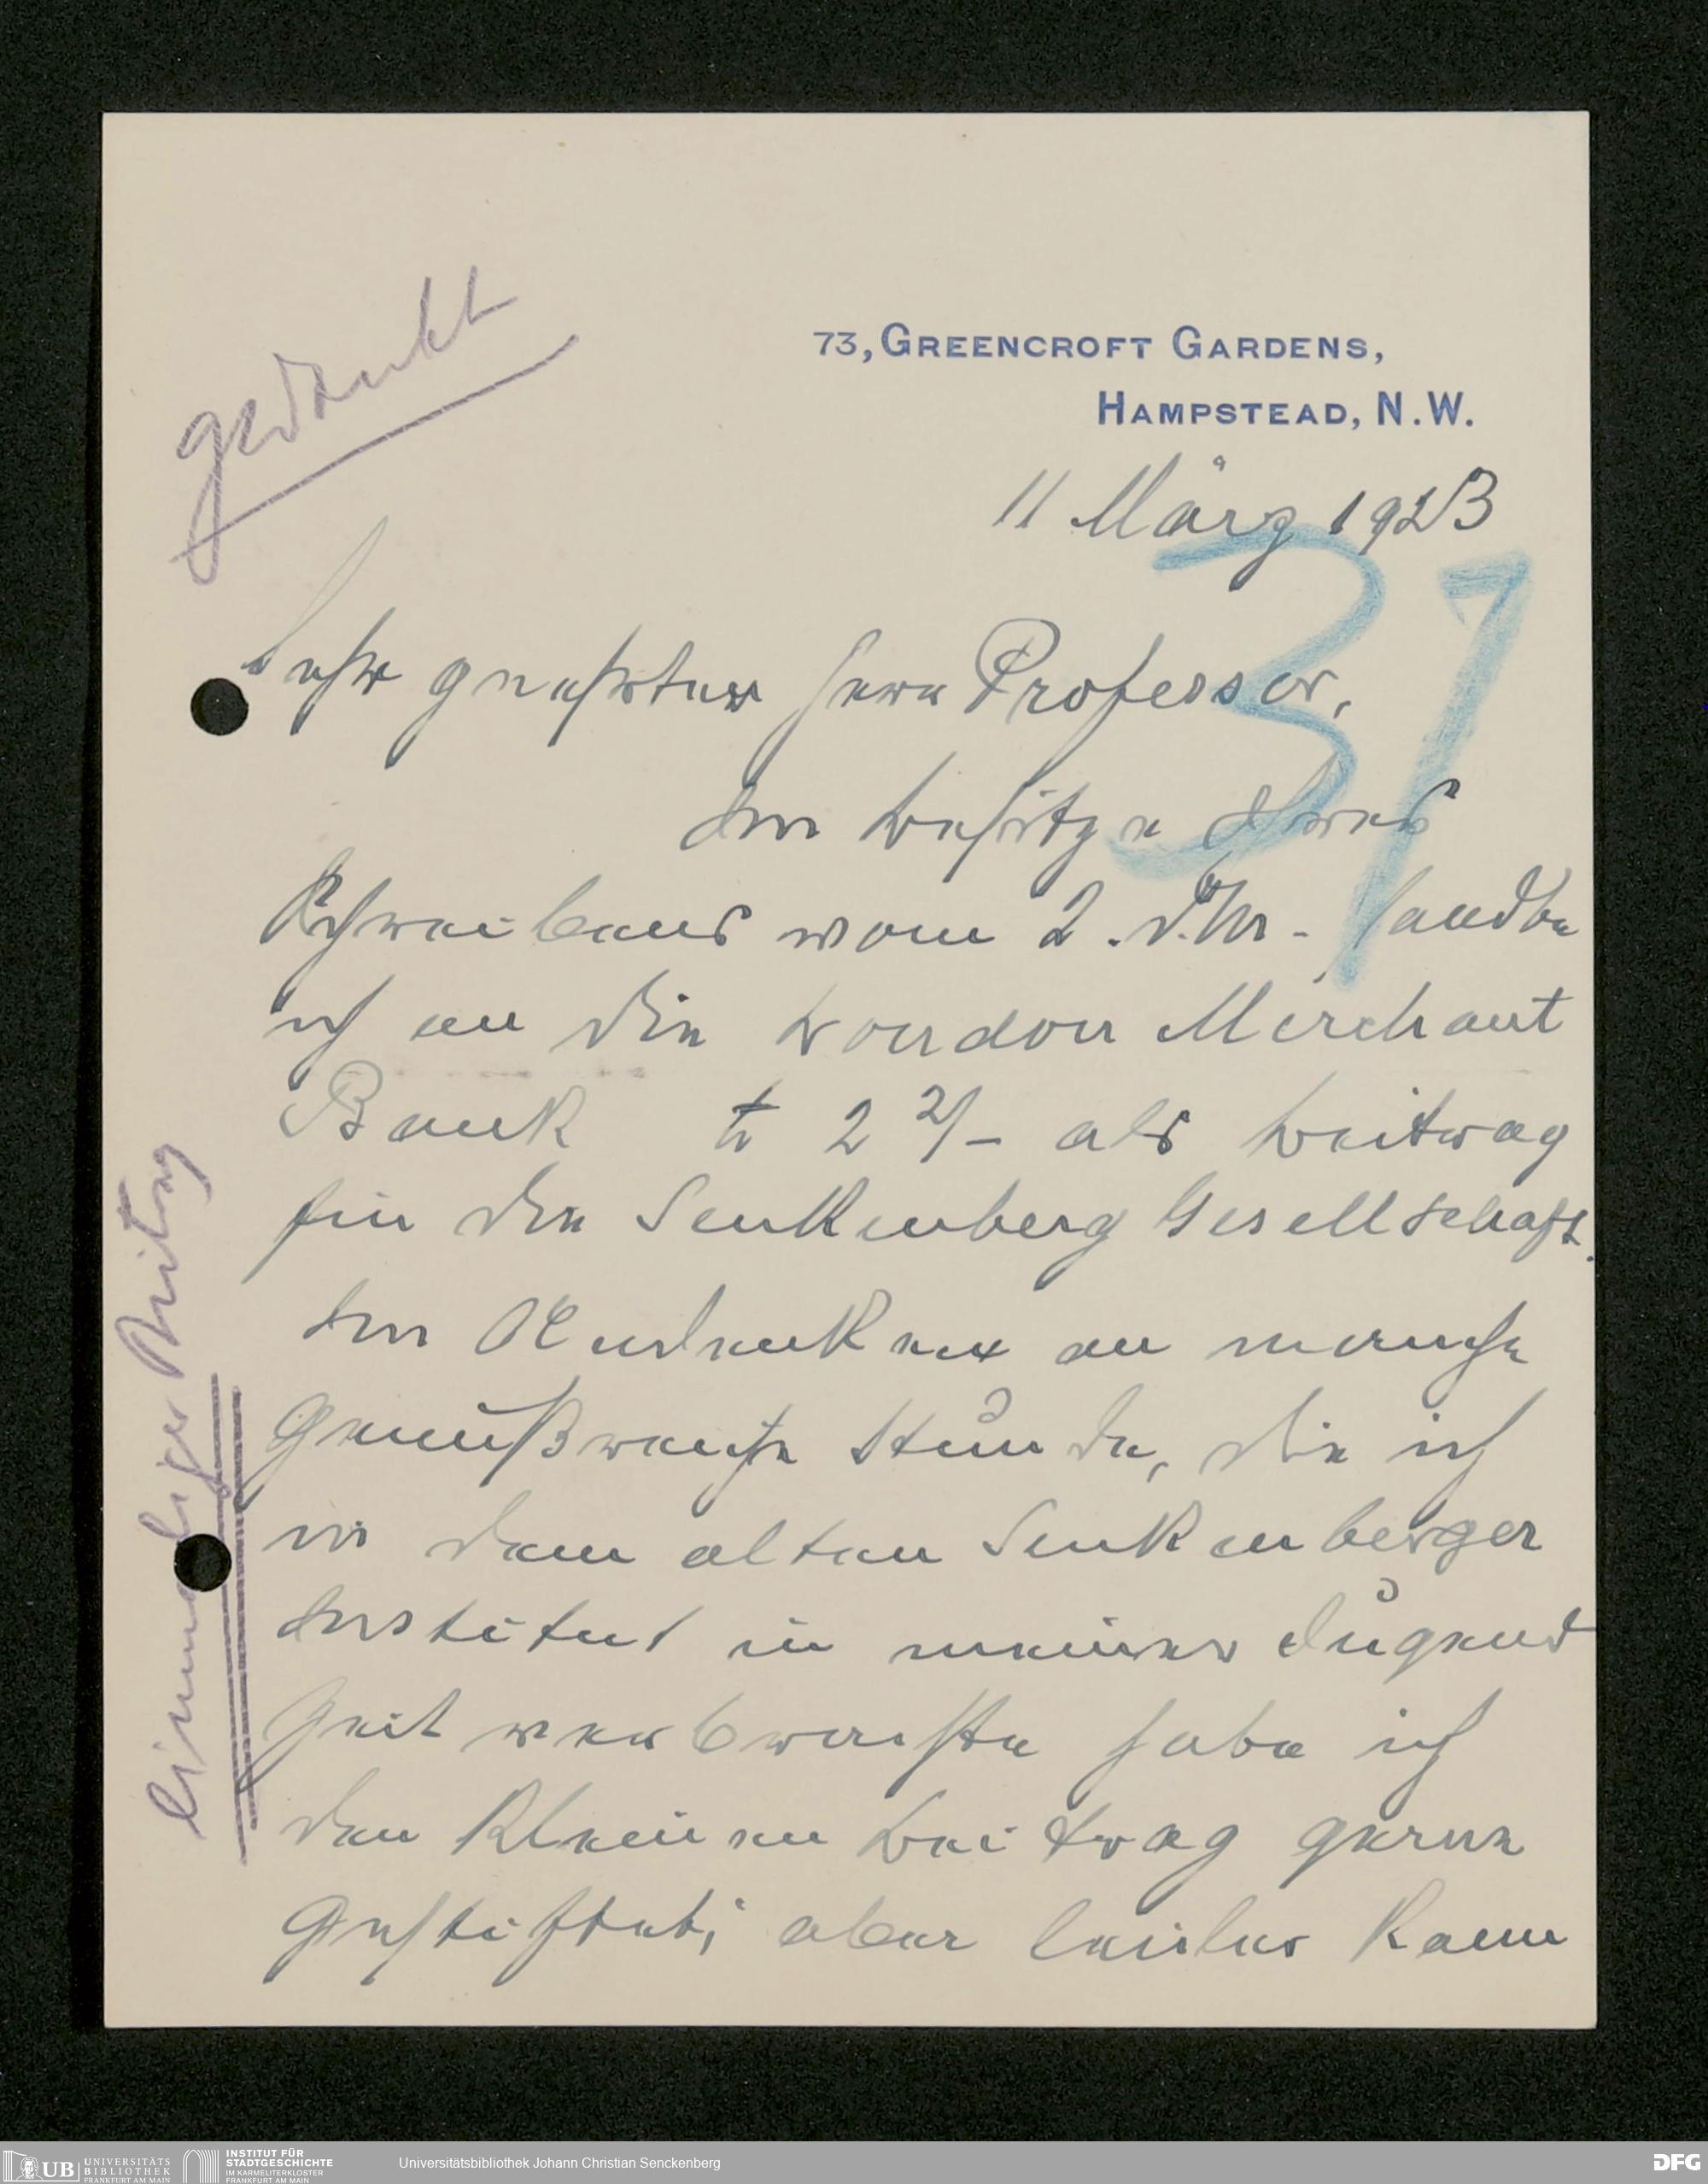 gedankt
73, GREENCROFT GARDENS,
HAMPSTEAD, N.W.
11 März 1923
37
Sehr geehrter Herr Professor,
Im Besitze Ihres
Schreibens vom 2. d. M. sandte
ich an die London Merchant
Bank £ 2 2/- als Beitrag
für die Senkenberg Gesellschaft.
Im Andenken an manche
genußreiche Stunde, die ich
in dem alten Senkenberger
Institut in meiner Jugend
Zeit verbrachte habe ich
den kleinen Beitrag gerne
gestiftet; aber leider kann
Einmaliger Beitrag
UB UNIVERSITÄTS
BIBLIOTHEK
FRANKFURT AM MAIN
INSTITUT FÜR
STADTGESCHICHTE
IM KARMELITERKLOSTER
FRANKFURT AM MAIN
Universitätsbibliothek Johann Christian Senckenberg
DFG